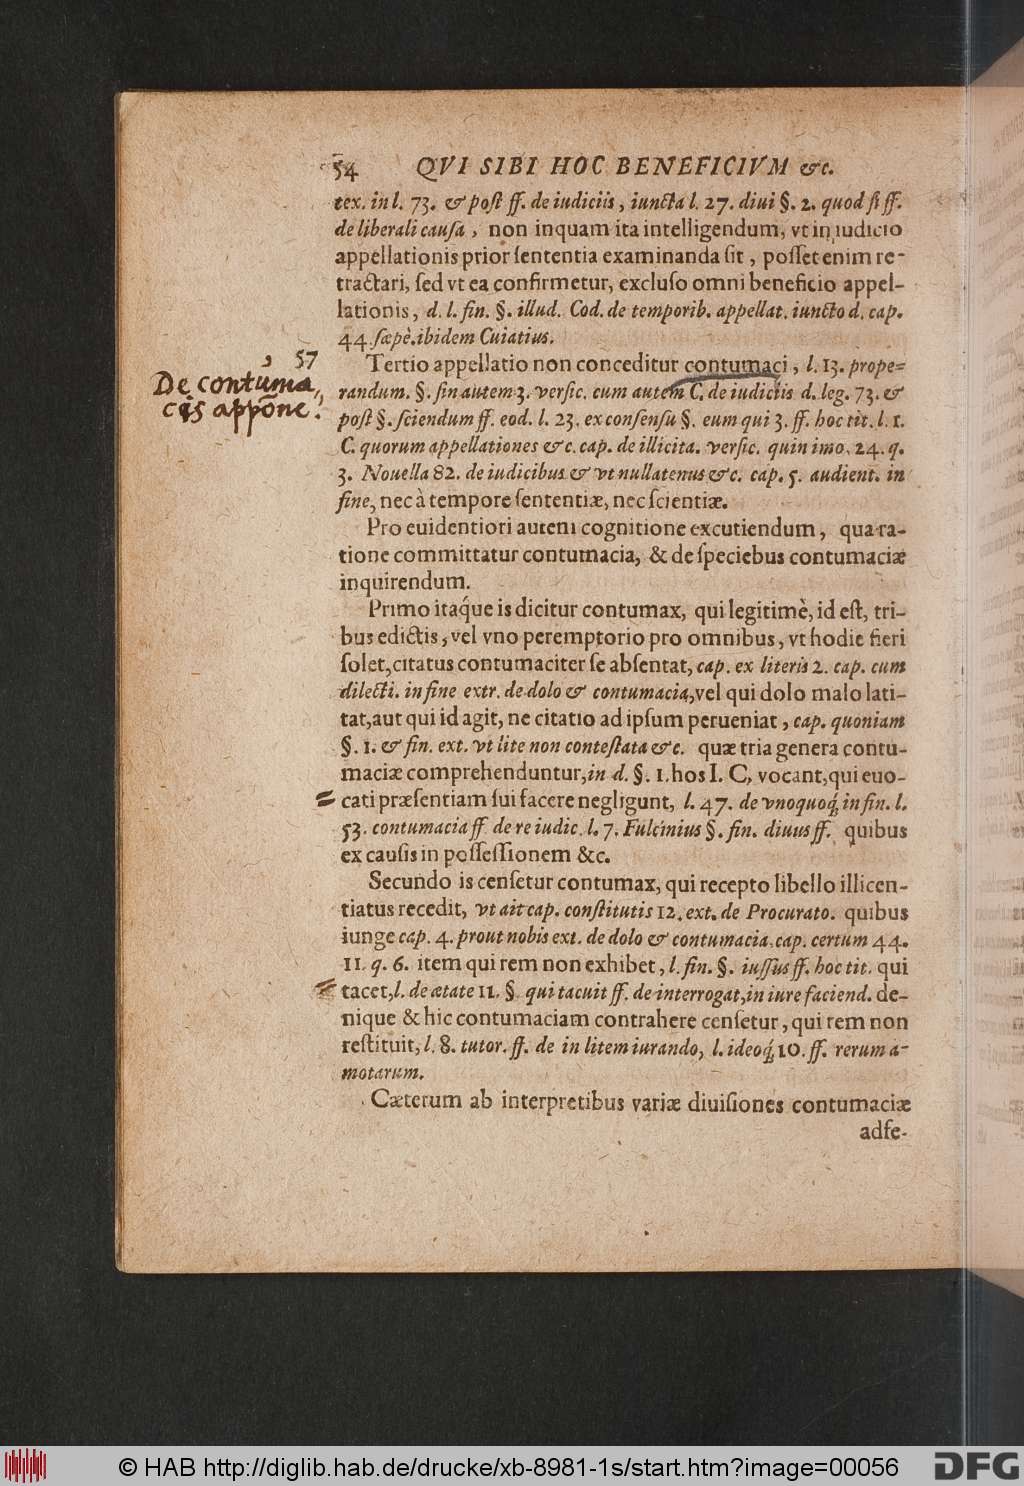 54 QVI SIBI HOC BENEFICIVM &c.
tex. in l. 73. & post ff. de iudiciis, iuncta l. 27. diui §. 2. quod si ff.
de liberali causa, non inquam ita intelligendum, vt in iudicio
appellationis prior sententia examinanda sit, posset enim re-
tractari, sed vt ea confirmetur, excluso omni beneficio appel-
lationis, d. l. fin. §. illud. Cod. de temporib. appellat. iuncto d. cap.
44. sæpè. ibidem Cuiatius.
57
De contuma
cis appōne.
Tertio appellatio non conceditur contumaci, l. 13. prope=
randum. §. sin autem 3. versic. cum autem C. de iudiciis d. leg. 73. &
post §. sciendum ff. eod. l. 23. ex consensu §. eum qui 3. ff. hoc tit. l. 1.
C. quorum appellationes &c. cap. de illicita. versic. quin imo. 24. q.
3. Nouella 82. de iudicibus & vt nullatenus &c. cap. 5. audient. in
fine, nec à tempore sententiæ, nec scientiæ.
Pro euidentiori autem cognitione excutiendum, qua ra-
tione committatur contumacia, & de speciebus contumaciæ
inquirendum.
Primo itaq́ue is dicitur contumax, qui legitimè, id est, tri-
bus edictis, vel vno peremptorio pro omnibus, vt hodie fieri
solet, citatus contumaciter se absentat, cap. ex literis 2. cap. cum
dilecti. in fine extr. de dolo & contumacia, vel qui dolo malo lati-
tat, aut qui id agit, ne citatio ad ipsum perueniat, cap. quoniam
§. 1. & fin. ext. vt lite non contestata &c. quæ tria genera contu-
maciæ comprehenduntur, in d. §. 1. hos I. C. vocant, qui euo-
cati præsentiam sui facere negligunt, l. 47. de vnoquoq́; in fin. l.
53. contumacia ff de re iudic. l. 7. Fulcinius §. fin. diuus ff. quibus
ex causis in possessionem &c.
Secundo is censetur contumax, qui recepto libello illicen-
tiatus recedit, vt ait cap. constitutis 12. ext. de Procurato. quibus
iunge cap. 4. prout nobis ext. de dolo & contumacia. cap. certum 44.
11. q. 6. item qui rem non exhibet, l. fin. §. iussus ff. hoc tit. qui
tacet, l. de ætate 11. § qui tacuit ff. de interrogat, in iure faciend. de-
nique & hic contumaciam contrahere censetur, qui rem non
restituit, l. 8. tutor. ff. de in litem iurando, l. ideoq́; 10. ff. rerum a-
motarum.
Cæterum ab interpretibus variæ diuisiones contumaciæ
adfe-
© HAB http://diglib.hab.de/drucke/xb-8981-1s/start.htm?image=00056
DFG